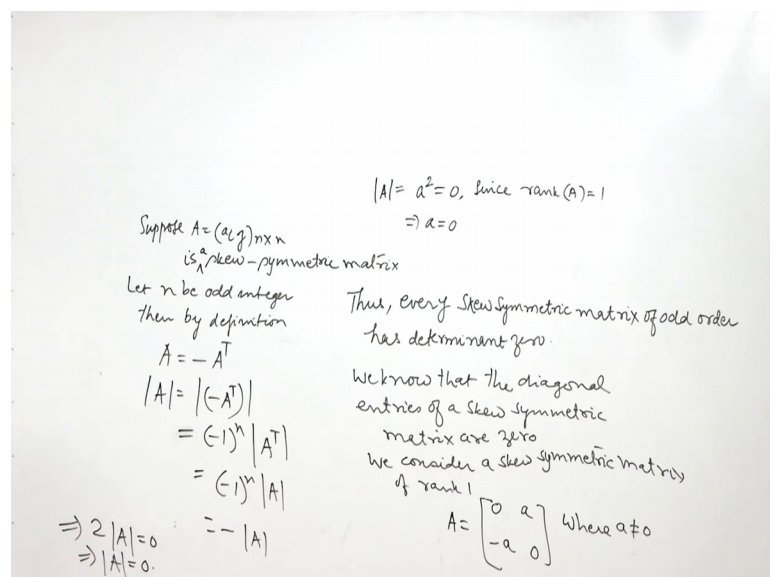 Suppose A = (aij)n×n
is a skew-symmetric matrix
Let n be odd integer
then by definition
A = - A^T
|A| = |(-A^T)|
= (-1)^n |A^T|
= (-1)^n |A|
= - |A|
⇒ 2|A| = 0
⇒ |A| = 0.
Thus, every skew symmetric matrix of odd order
has determinant zero.
We know that the diagonal
entries of a skew symmetric
matrix are zero
We consider a skew symmetric matrix
of rank 1
A = [0 a; -a 0] where a ≠ 0
|A| = a² = 0, since rank(A) = 1
⇒ a = 0